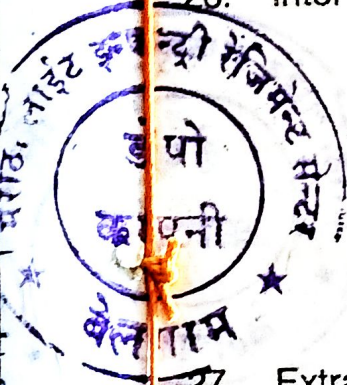 26. Inter
मराठा लाईट इन्फन्ट्री रेजिमेन्ट सेन्टर
डेपो
कम्पनी
बेलगाम
27. Extra